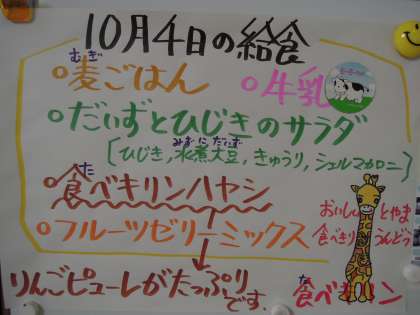 10月4日の給食
むぎ
○麦ごはん ○牛乳
○だいずとひじきのサラダ
みずに だいず
[ひじき,水煮大豆,きゅうり,シェルマカロニ]
た
○食べキリンハヤシ
○フルーツゼリーミックス
りんごピューレがたっぷり
です.
おいしい とやま
食べきり うんどう
た
食べキリン